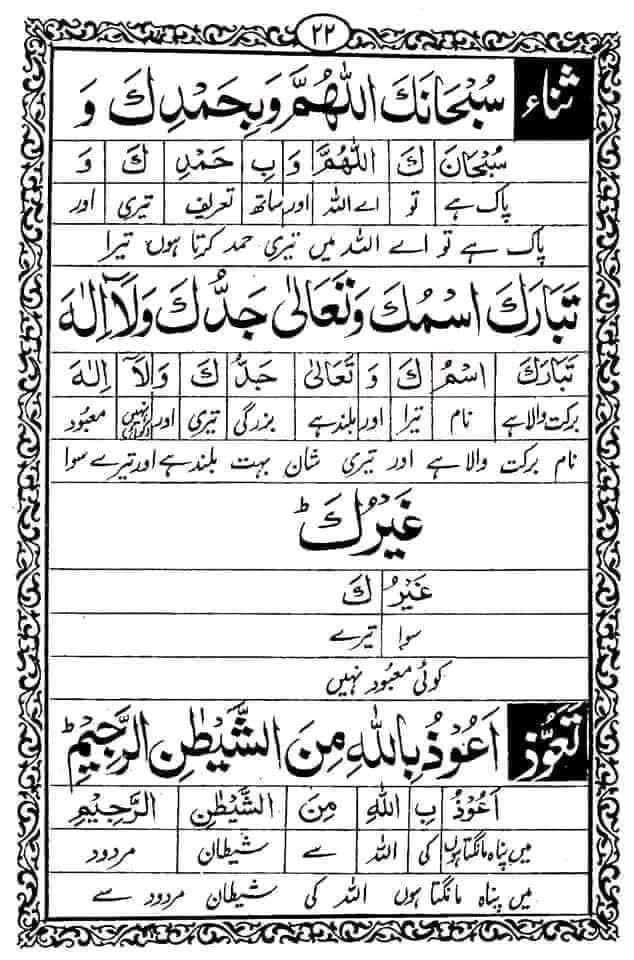 ۲۲
ثناء سُبْحَانَكَ اللّٰهُمَّ وَبِحَمْدِكَ وَ
سُبْحَانَ كَ اللّٰهُمَّ وَ بِ حَمْدِ كَ وَ
پاک ہے تو اے اللہ اور ساتھ تعریف تیری اور
پاک ہے تو اے اللہ میں تیری حمد کرتا ہوں تیرا
تَبَارَكَ اسْمُكَ وَتَعَالٰى جَدُّكَ وَلَآ اِلٰهَ
تَبَارَكَ اسْمُ كَ وَ تَعَالٰى جَدُّ كَ وَ لَآ اِلٰهَ
برکت والا ہے نام تیرا اور بلند ہے بزرگی تیری اور نہیں معبود
نام برکت والا ہے اور تیری شان بہت بلند ہے اور تیرے سوا
غَيْرُكَ ؕ
غَيْرُ كَ
سوا تیرے
کوئی معبود نہیں
تعوّذ اَعُوْذُ بِاللّٰهِ مِنَ الشَّيْطٰنِ الرَّجِيْمِ ؕ
اَعُوْذُ بِ اللّٰهِ مِنَ الشَّيْطٰنِ الرَّجِيْمِ
میں پناہ مانگتا ہوں کی اللہ سے شیطان مردود
میں پناہ مانگتا ہوں اللہ کی شیطان مردود سے